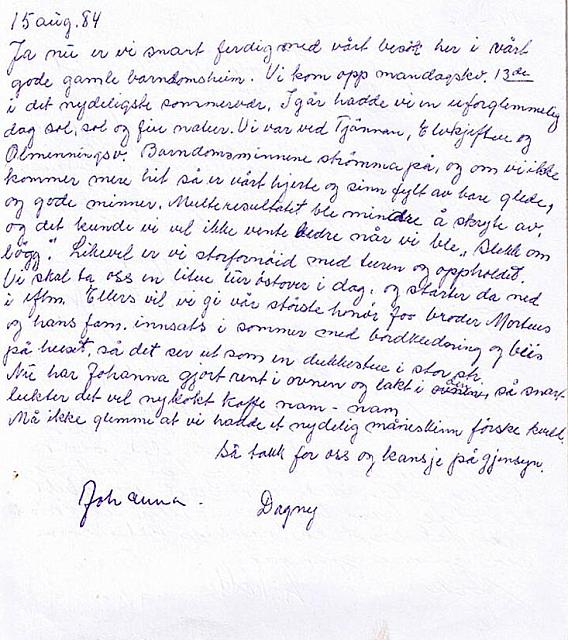 15 aug. 84
Ja nu er vi snart ferdig med vårt besøk her i vårt
gode gamle barndomsheim. Vi kom opp mandagskv. 13de
i det nydeligste sommervær. I går hadde vi en uforglemmelig
dag sol, sol og fin natur. Vi var ved Tjännan, Elvkjeften og
Olmenningsv. Barndomsminnene strömma på, og om vi ikke
kommer mere hit så er vårt hjerte og sinn fylt av bare glede,
og gode minner. Multeresultatet ble mindre å skryte av,
og det kunde vi vel ikke vente bedre når vi ble, "blekk om
bögg." Likevel er vi storfornöid med turen og oppholdet.
Vi skal ta oss en liten tur östover i dag, og starter da ned
i eftm. Ellers vil vi gi vår störste honör for broder Morteus
og hans fam. innsats i sommer med bordkledning og beis
på huset, så det ser ut som en dukkestue i stor str.
Nu har Johanna gjort rent i ovnen og lakt i den, så snart
lukter det vel nykokt kaffe nam-nam
Må ikke glemme at vi hadde et nydelig måneskinn förske kveld.
Så takk for oss og kansje på gjensyn.
Johanna. Dagny